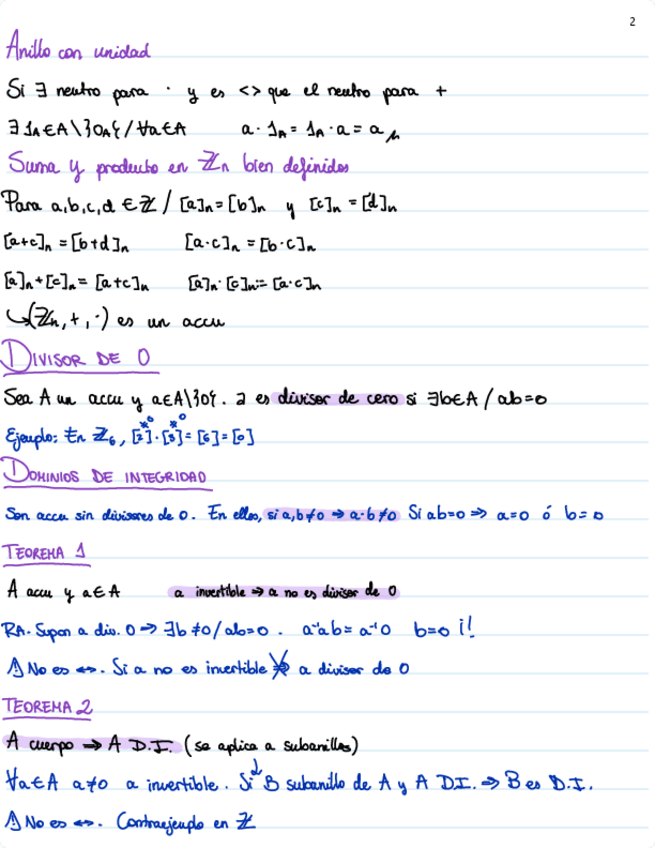 2
Anillo con unidad
Si ∃ neutro para · y es <> que el neutro para +
∃ 1_A ∈ A\{0_A} / ∀a ∈ A a · 1_A = 1_A · a = a
Suma y producto en ℤn bien definidos
Para a,b,c,d ∈ ℤ / [a]n = [b]n y [c]n = [d]n
[a+c]n = [b+d]n [a·c]n = [b·c]n
[a]n + [c]n = [a+c]n [a]n · [c]n := [a·c]n
↳ (ℤn, +, ·) es un accu
DIVISOR DE 0
Sea A un accu y a ∈ A\{0}. a es divisor de cero si ∃b ∈ A / ab = 0
≠0 ≠0
Ejemplo: En ℤ6, [2]·[3] = [6] = [0]
DOMINIOS DE INTEGRIDAD
Son accu sin divisores de 0. En ellos, si a,b ≠ 0 ⇒ a·b ≠ 0 Si ab = 0 ⇒ a = 0 ó b = 0
TEOREMA 1
A accu y a ∈ A a invertible ⇒ a no es divisor de 0
RA. Supon a div. 0 ⇒ ∃b ≠ 0 / ab = 0. a⁻¹ab = a⁻¹0 b = 0 ¡!
⚠ No es ↔. Si a no es invertible ⇏ a divisor de 0
TEOREMA 2
A cuerpo ⇒ A D.I. (se aplica a subanillos)
↓
∀a ∈ A a ≠ 0 a invertible. Si B subanillo de A y A DI. ⇒ B es D.I.
⚠ No es ↔. Contraejemplo en ℤ